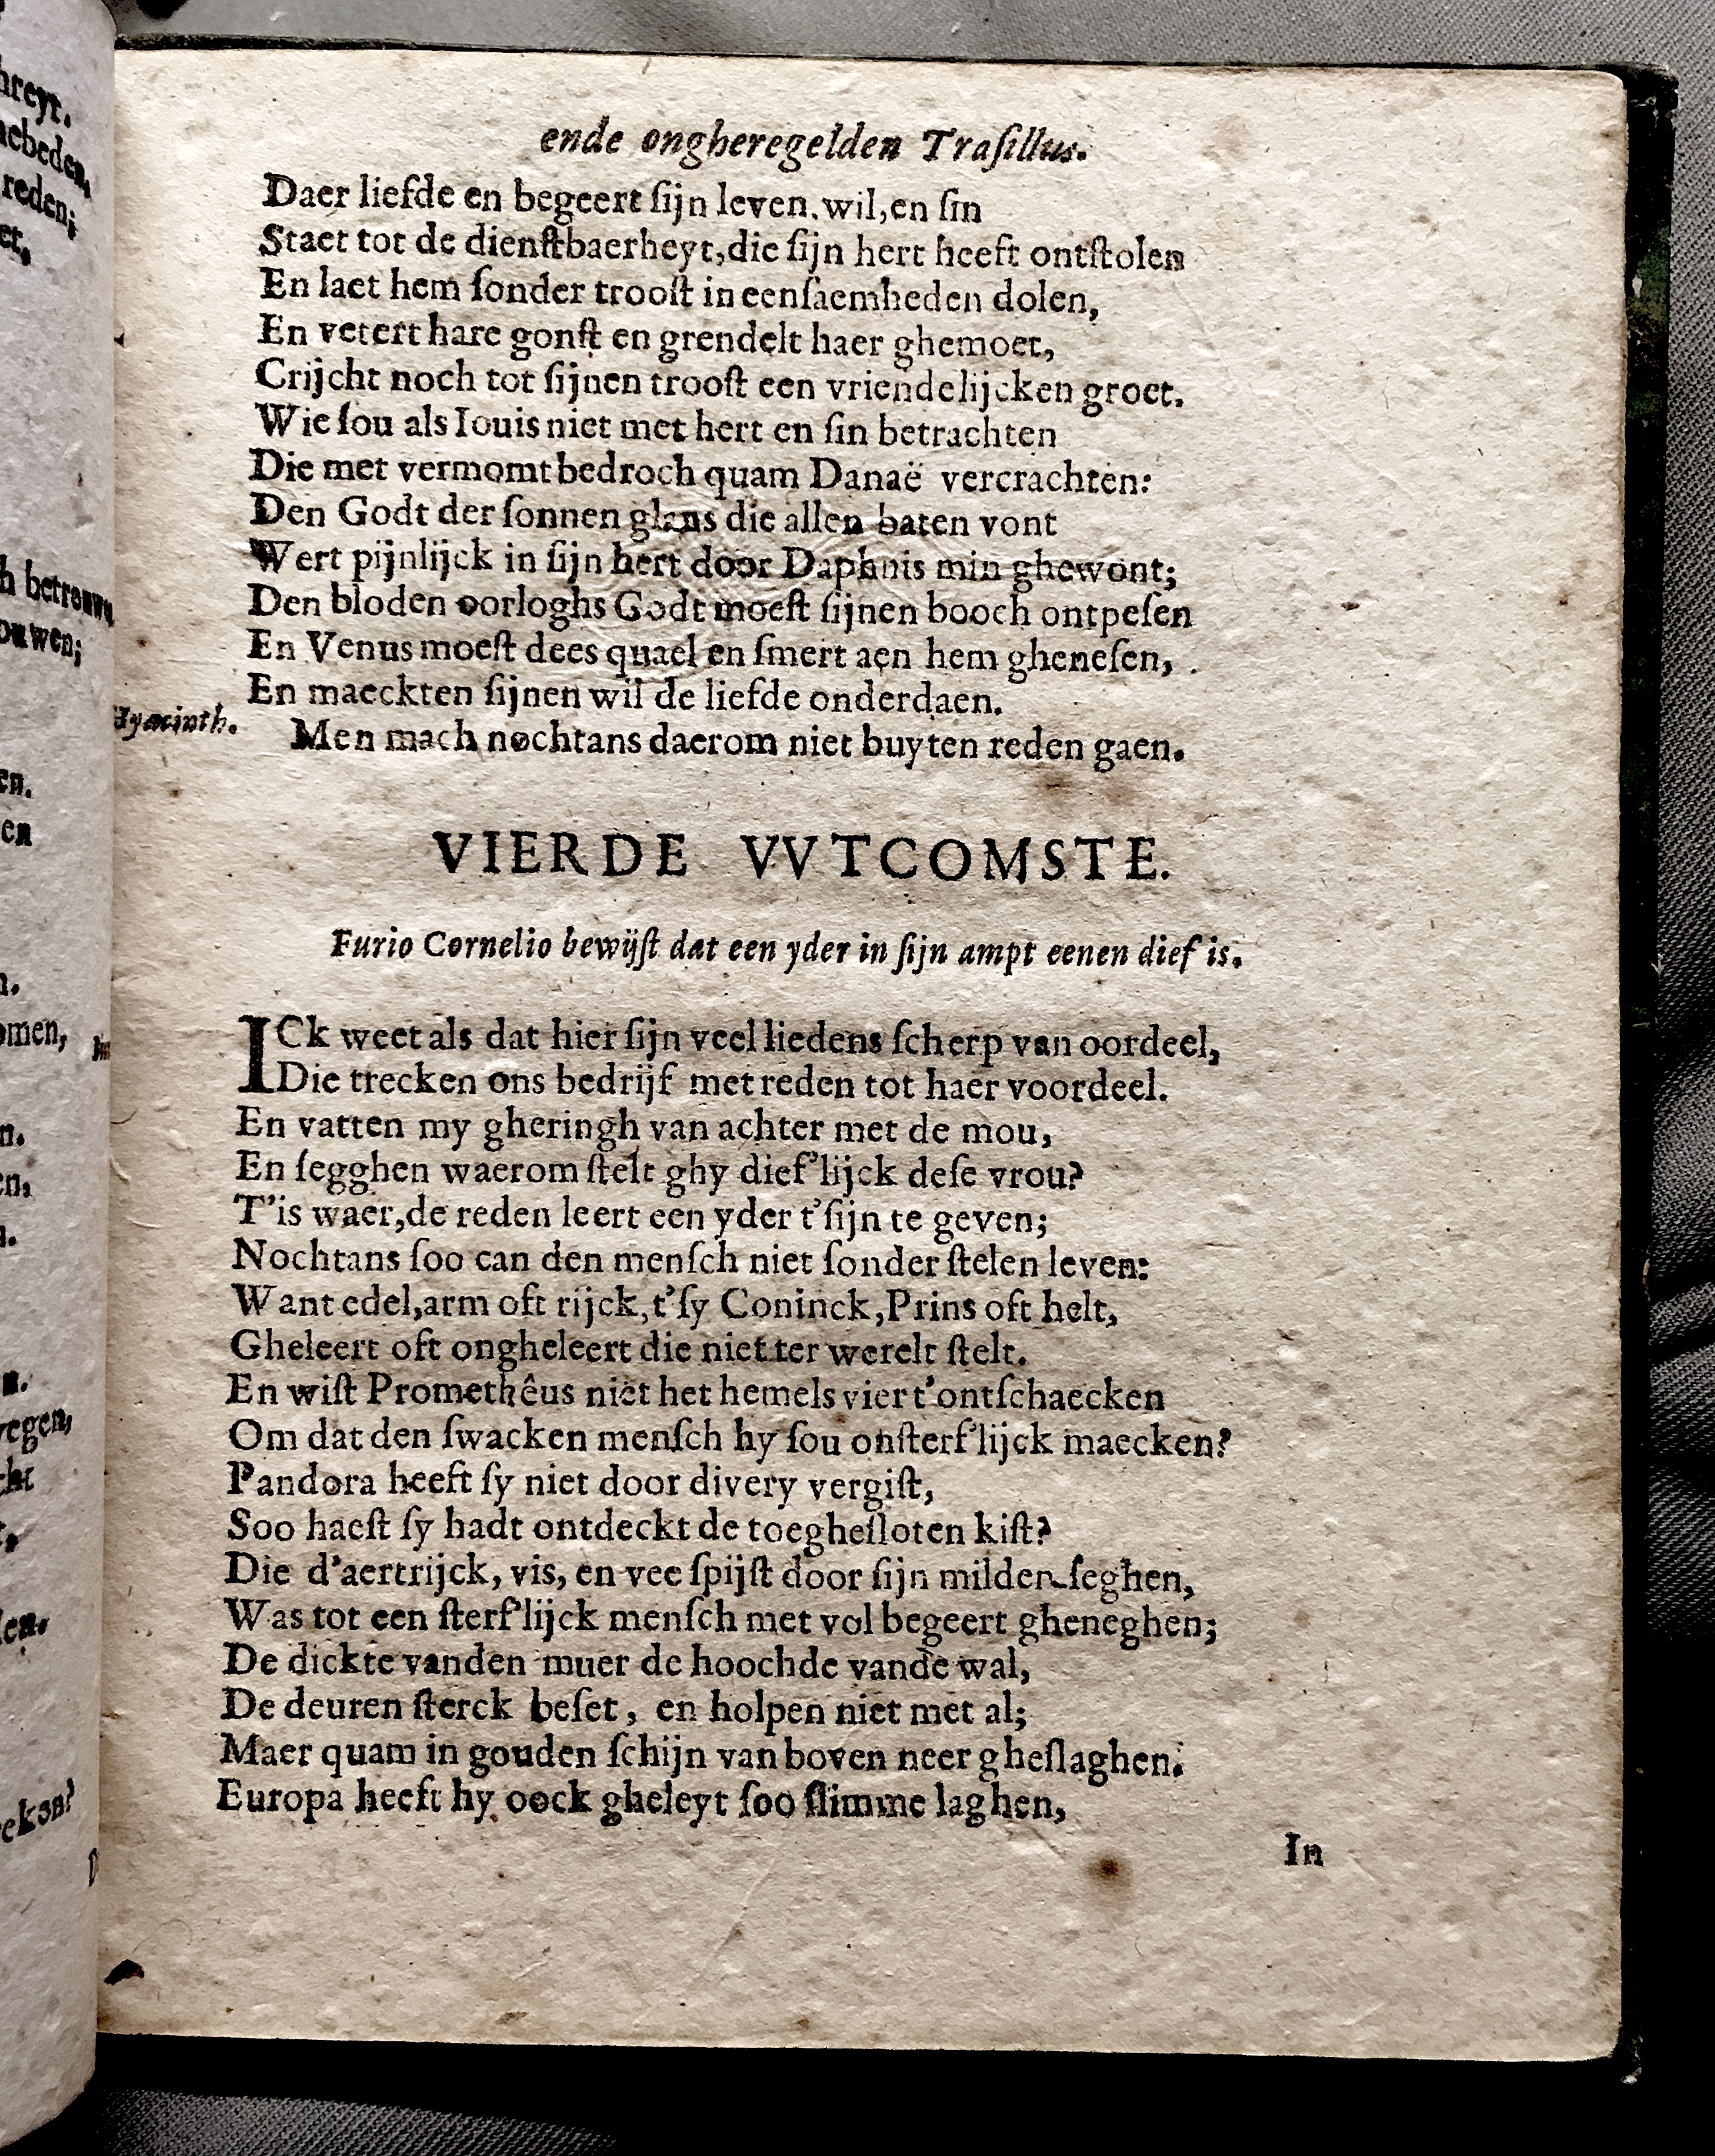 ende ongheregelden Traſillus.
Daer liefde en begeert ſijn leven, wil, en ſin
Staet tot de dienſtbaerheyt, die ſijn hert heeft ontſtolen
En laet hem ſonder trooſt in eenſaemheden dolen,
En vetert hare gonſt en grendelt haer ghemoet,
Crijcht noch tot ſijnen trooſt een vriendelijcken groet.
Wie ſou als Iouis niet met hert en ſin betrachten
Die met vermomt bedroch quam Danaë vercrachten:
Den Godt der ſonnen glans die allen baten vont
Wert pijnlijck in ſijn hert door Daphnis min ghewont;
Den bloden oorloghs Godt moeſt ſijnen booch ontpeſen
En Venus moeſt dees quael en ſmert aen hem gheneſen,
En maeckten ſijnen wil de liefde onderdaen.
Hyacinth. Men mach nochtans daerom niet buyten reden gaen.
VIERDE VVTCOMSTE.
Furio Cornelio bewijſt dat een yder in ſijn ampt eenen dief is.
ICk weet als dat hier ſijn veel liedens ſcherp van oordeel,
Die trecken ons bedrijf met reden tot haer voordeel.
En vatten my gheringh van achter met de mou,
En ſegghen waerom ſtelt ghy dief'lijck deſe vrou?
T'is waer, de reden leert een yder t'ſijn te geven;
Nochtans ſoo can den menſch niet ſonder ſtelen leven:
Want edel, arm oft rijck, t'ſy Coninck, Prins oft helt,
Gheleert oft ongheleert die niet ter werelt ſtelt.
En wiſt Promethêus niet het hemels vier t'ontſchaecken
Om dat den ſwacken menſch hy ſou onſterf'lijck maecken?
Pandora heeft ſy niet door divery vergiſt,
Soo haeſt ſy hadt ontdeckt de toegheſloten kiſt?
Die d'aertrijck, vis, en vee ſpijſt door ſijn milden ſeghen,
Was tot een ſterf'lijck menſch met vol begeert gheneghen;
De dickte vanden muer de hoochde vande wal,
De deuren ſterck beſet, en holpen niet met al;
Maer quam in gouden ſchijn van boven neer gheſlaghen.
Europa heeft hy oock gheleyt ſoo ſlimme laghen,
In